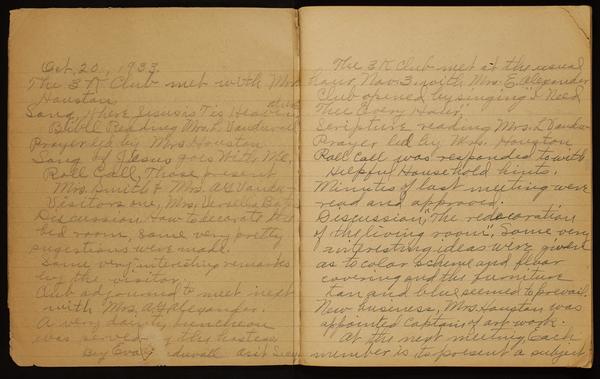 Oct. 20, 1933.
The 3 K Club met with Mrs
Houston
Song, Where Jesus is Tis Heaven
Bible Reading Mrs. L. Vanduvall
Prayer led by Mrs Houston
Song If Jesus goes With Me,
Roll Call, Those present
Mrs. Smith & Mrs. A G
Visitors one, Mrs.
Discussion How to decorate the
bed room, some very pretty
sugestions were made.
Some very interesting remarks
by the visitor
Club adjourned to meet next
with Mrs. A G Alexander.
A very dainty luncheon
was served by the hostess
By Eva Vanduvall
The 3 K Club met at the usual
hour, Nov. 3. with Mrs. E. Alexander
Club opened by singing "I Need
Thee Every Hour,
Scripture reading Mrs. L
Prayer led by Mrs. Houston
Roll call was responded to with
Helpful Household hints.
Minutes of last meeting were
read and approved.
Discussion, "The redecoration
of the living room". Some very
interesting ideas were given
as to color scheme and floor
covering and the furniture
tan and blue seemed to prevail.
New buseness, Mrs. Houston was
appointed Captain of art work.
At the next meeting each
member is to present a subject